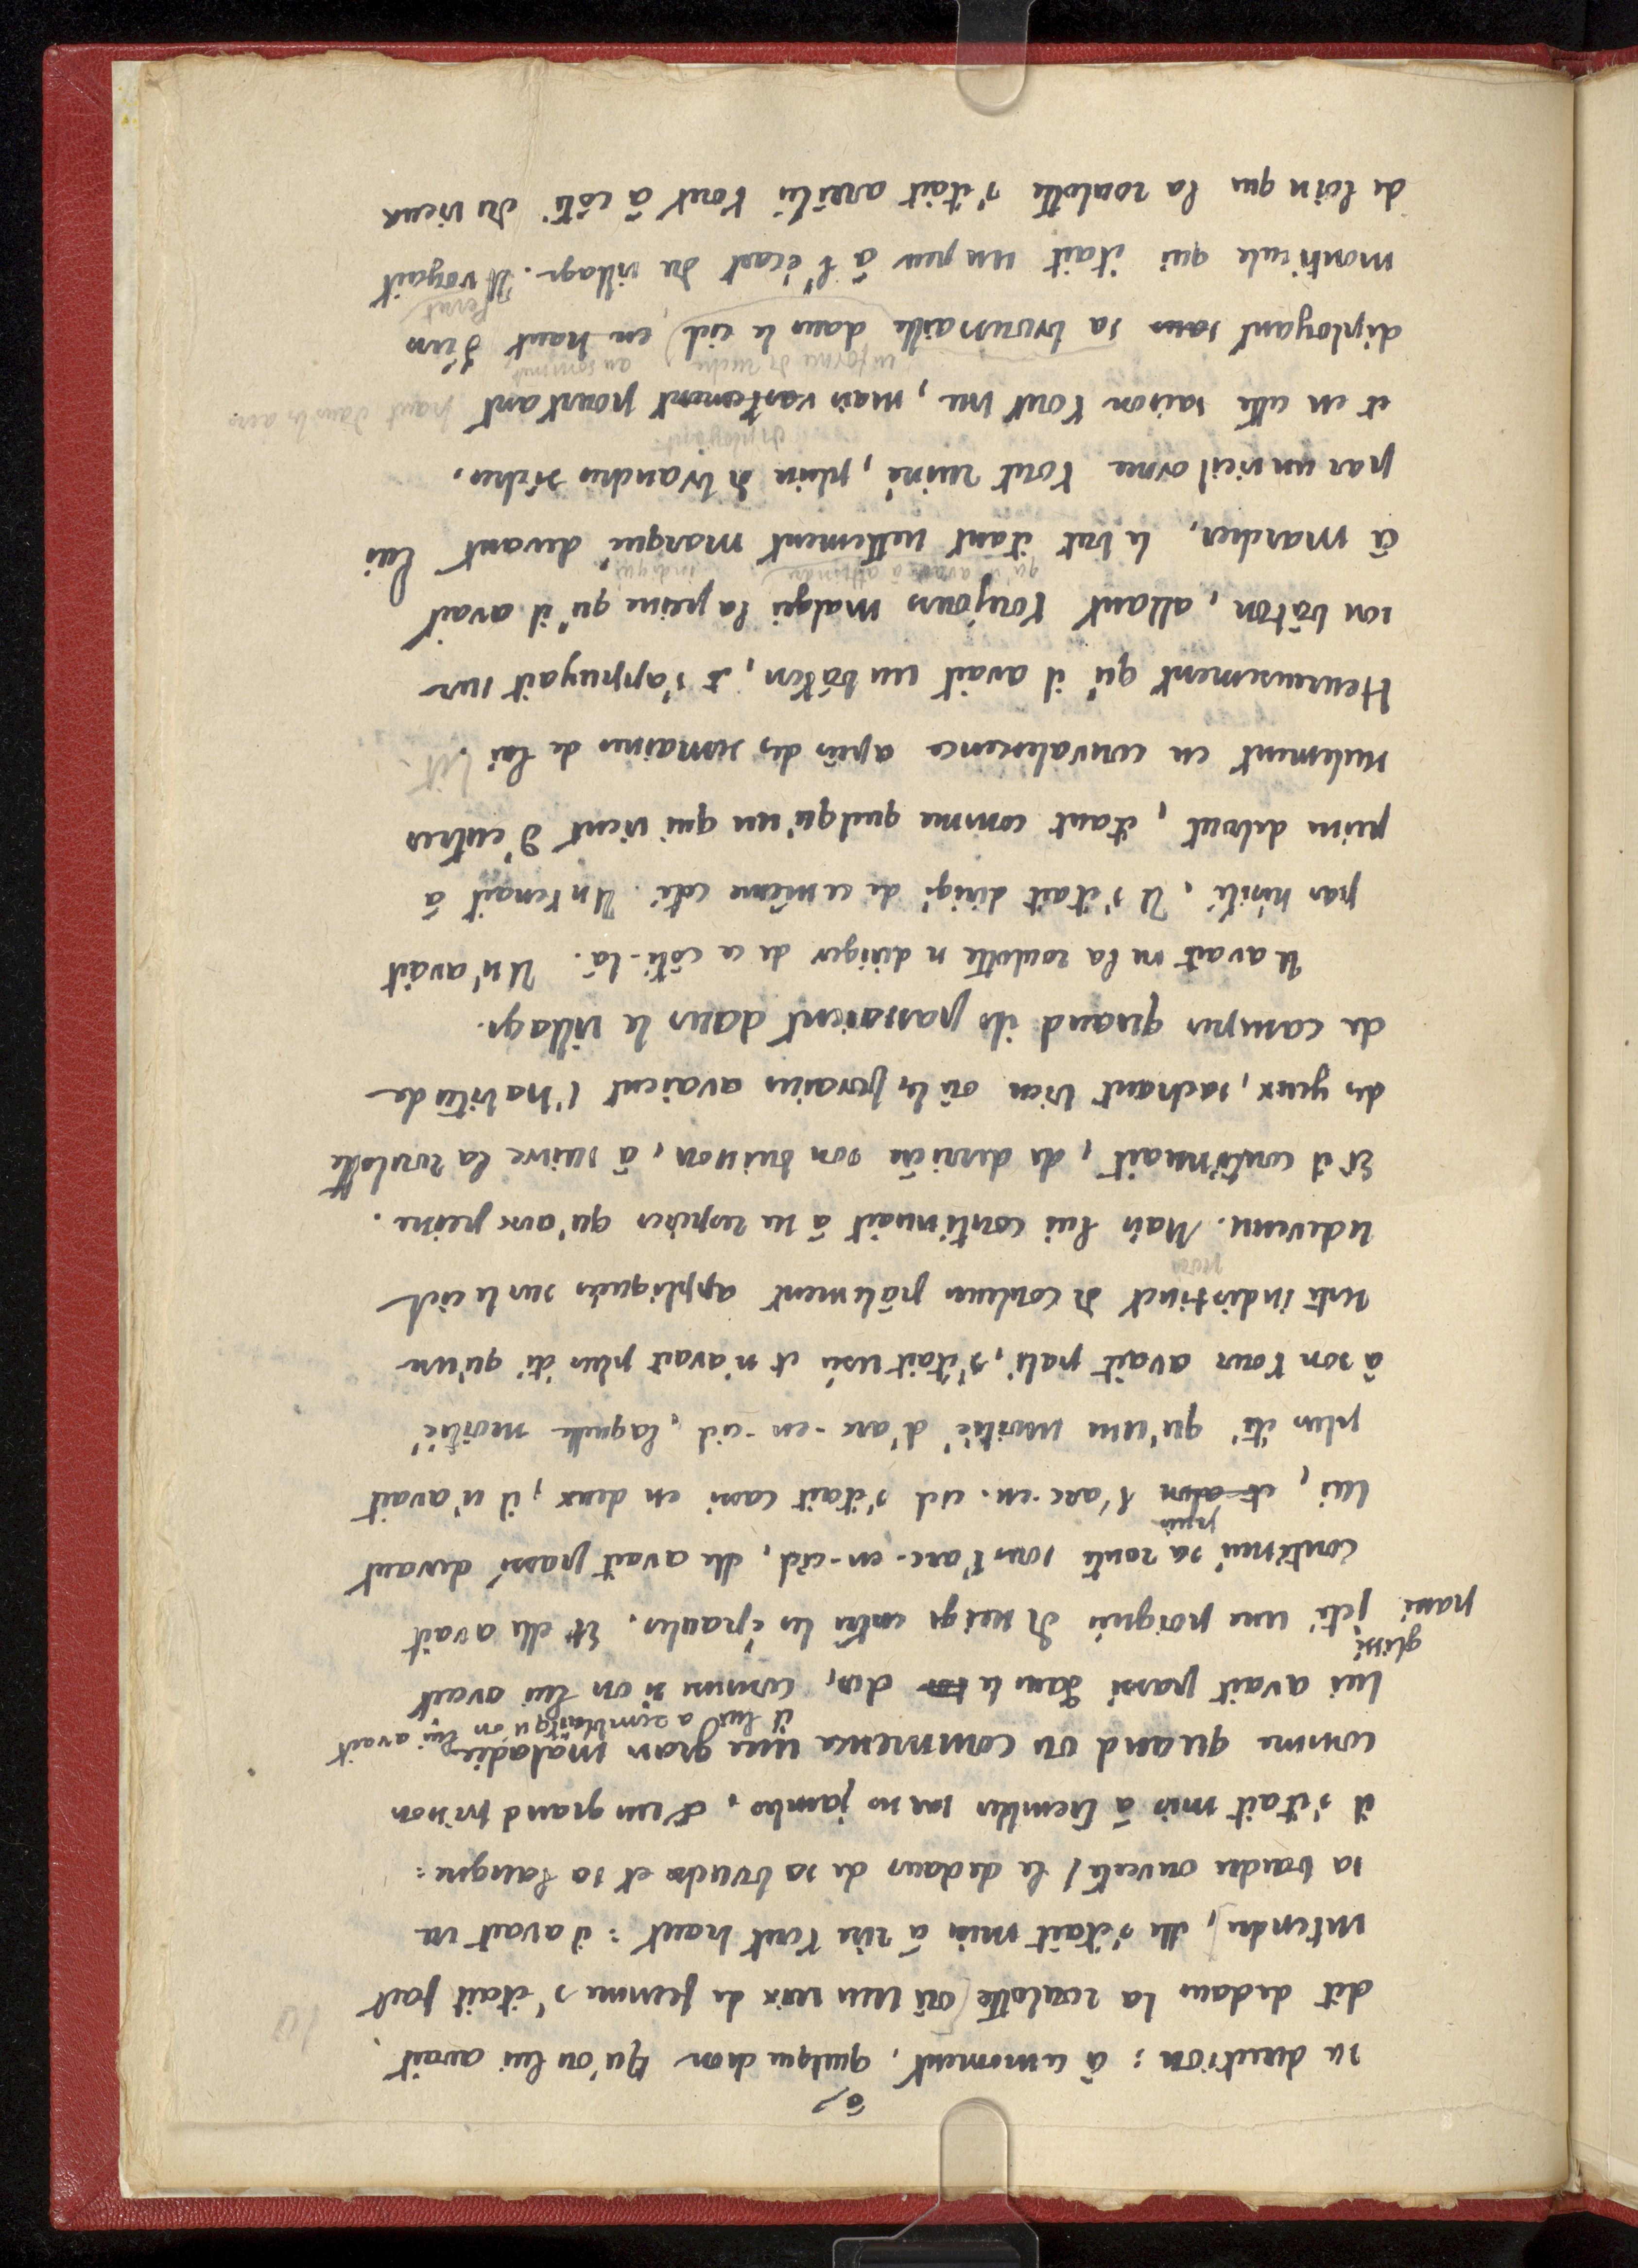 6/
sa direction : à ce moment, quelque chose qu'on lui avait
dit dedans la roulotte où une voix de femme s'était fait
entendre, elle s'était mise à rire tout haut : il avait vu
sa bouche ouverte, le dedans de sa bouche et sa langue :
il s'était mis à trembler sur ses jambes, et un grand frisson
comme quand on commence une grosse maladie,
il lui a semblait qu'on lui avait
lui avait passé dans le dos, comme si on lui avait
glissé
passé jeté une poignée de neige entre les épaules. Et elle avait
continué sa route sous l'arc-en-ciel, elle avait passé devant
puis
lui, et alors l'arc-en-ciel s'était cassé en deux, il n'avait
plus été qu'une moitié d'arc-en-ciel, laquelle moitié
à son tour avait pali, s'était usée et n'avait plus été qu'un
reste indistinct de couleurs pâlement appliquées sur le ciel
redevenu. Mais lui continuait à ne respirer qu'avec peine.
Et il continuait, de derrière son buisson, à suivre la roulotte
des yeux, sachant bien où les forains avaient l'habitude
de camper quand ils passaient dans le village.
Il avait vu la roulotte se diriger de ce côté-là. Il n'avait
pas hésité, il s'était dirigé de ce même coté. Il se tenait à
peine debout, étant comme quelqu'un qui vient d'entrer
seulement en convalescence après des semaines de lai. lit.
Heureusement qu'il avait un bâton, et s'appuyait sur
son bâton, allant toujours malgré la peine qu'il avait
qu'il avait à atteindre indiqué
à marcher, le but étant nettement marqué devant lui
par un vieil orme tout ruiné, plein de branches sèches,
déployant
et en cette saison tout nu, mais vastement pourtant haut dans les airs
en forme de ruche au sommet
déployant sous sa broussaille dans le ciel, en haut d'un
Perut
monticule qui était un peu à l'écart du village. Il voyait
de loin que la roulotte s'était arrêtée tout à côté du vieux